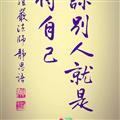 諒別人就是
待自己
證嚴法師 靜思語